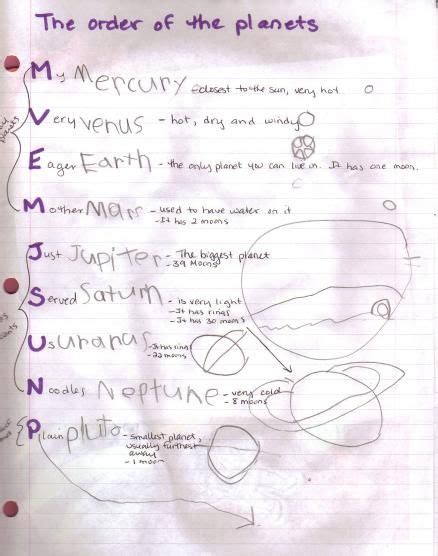 The order of the planets
My Mercury - closest to the sun, very hot
Very Venus - hot, dry and windy
Eager Earth - the only planet you can live in. It has one moon.
Mother Mars - used to have water on it
- It has 2 moons
Just Jupiter - The biggest planet
- 39 Moons
Served Saturn - is very light
- It has rings
- It has 30 moons
Us uranus - It has rings
- 22 moons
Noodles Neptune - very cold
- 8 moons
Plain pluto - smallest planet,
usually furthest
away
- 1 moon